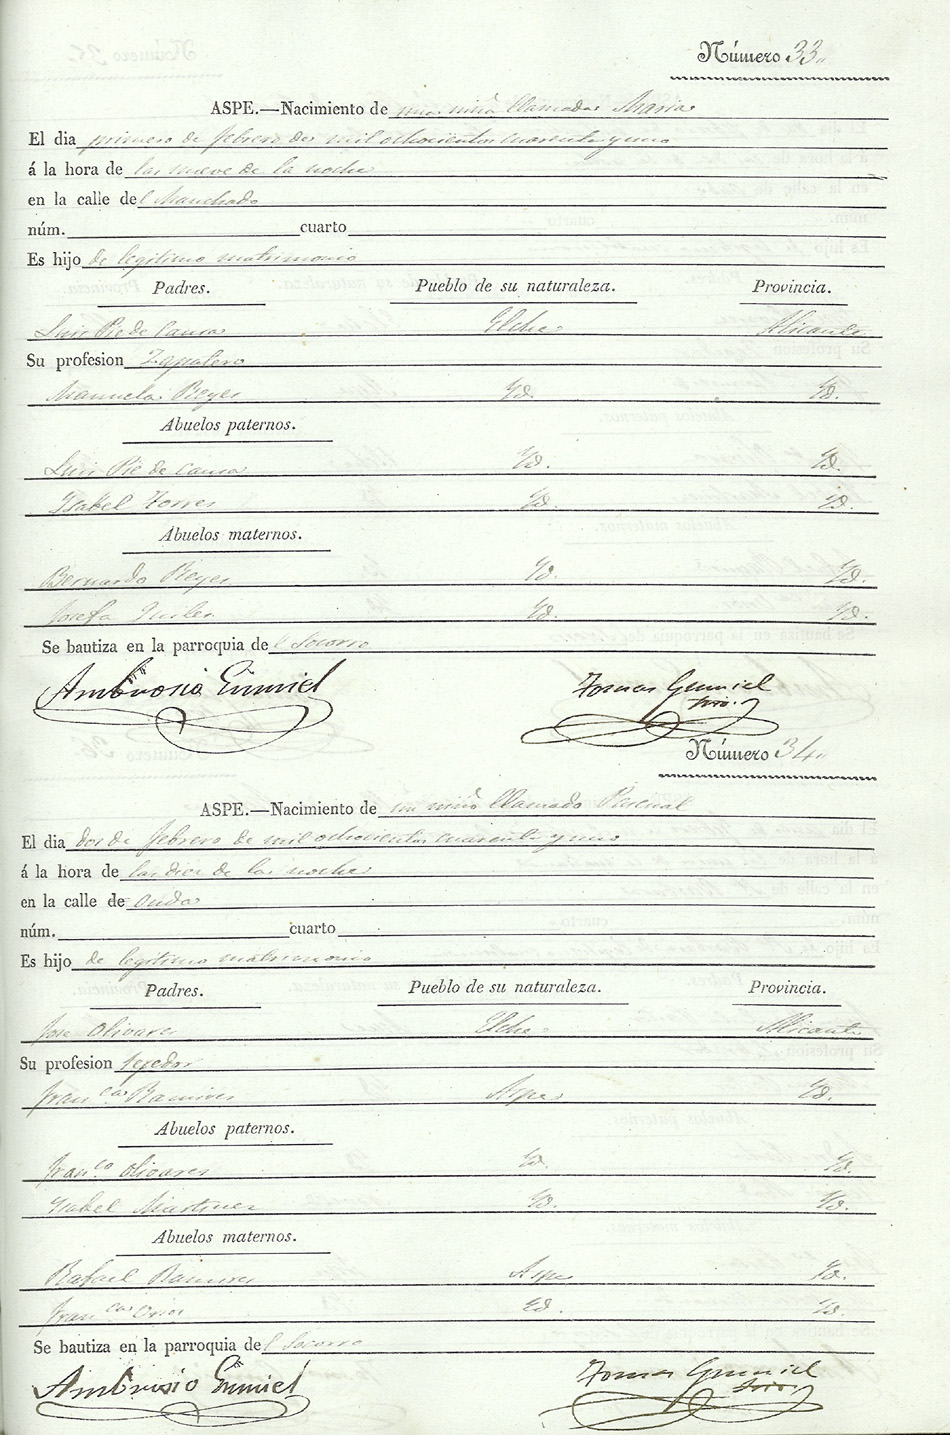 Número 33
ASPE.—Nacimiento de una niña llamada Maria
El dia primero de febrero de mil ochocientos cuarenta y uno
á la hora de las nueve de la noche
en la calle del Manchado
núm. cuarto
Es hijo de legitimo matrimonio
Padres. Pueblo de su naturaleza. Provincia.
Luis Pie de Causa Elche Alicante
Su profesion Zapatero
Manuela Reyes Yd. Yd.
Abuelos paternos.
Luis Pie de Causa Yd. Yd.
Ysabel Torres Yd. Yd.
Abuelos maternos.
Bernardo Reyes Yd. Yd.
Josefa Quiles Yd. Yd.
Se bautiza en la parroquia del Socorro
Ambrosio Tomas
Número 34
ASPE.—Nacimiento de un niño llamado Pascual
El dia dos de febrero de mil ochocientos cuarenta y uno
á la hora de las diez de la noche
en la calle de
núm. cuarto
Es hijo de legitimo matrimonio
Padres. Pueblo de su naturaleza. Provincia.
Jose Olivares Elche Alicante
Su profesion tejedor
Franca Ramires Aspe Yd.
Abuelos paternos.
Franco Olivares Yd. Yd.
Ysabel Martinez Yd. Yd.
Abuelos maternos.
Rafael Ramires Aspe Yd.
Franca Yd. Yd.
Se bautiza en la parroquia del Socorro
Ambrosio Tomas